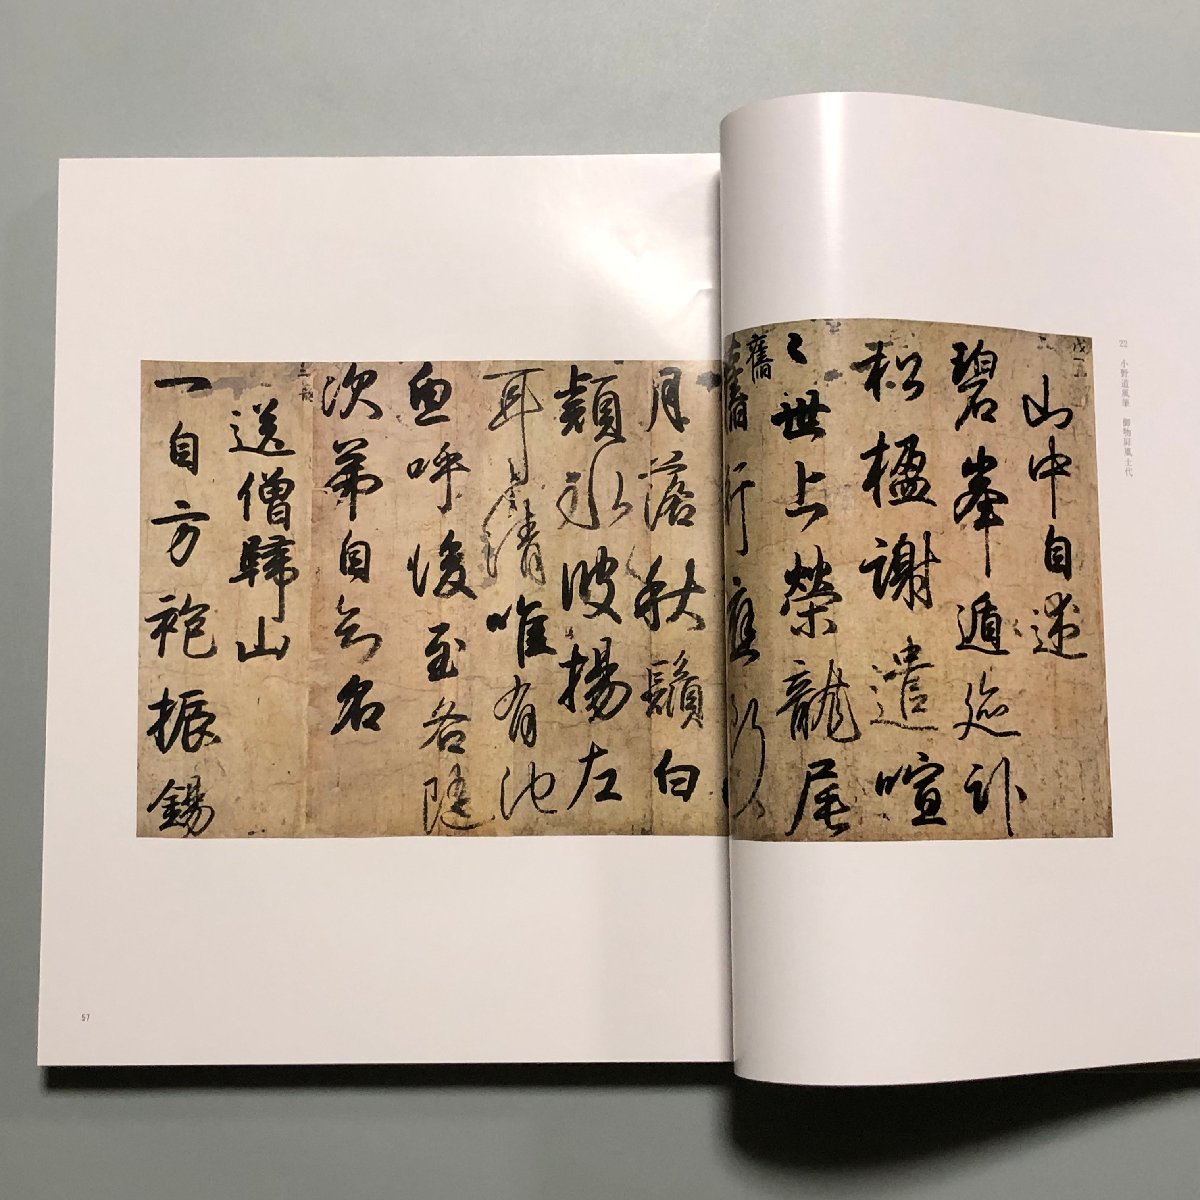 22 小野道風筆 御物屏風土代
山中自述
碧峯遁迹卧
松楹謝遣喧
〻世上榮龍尾
舊
舊行應断
月落秋鬢白
潁水波揚左
耳清唯有池
魚呼後至各随
次第自知名
送僧歸山
一自方袍振錫
57